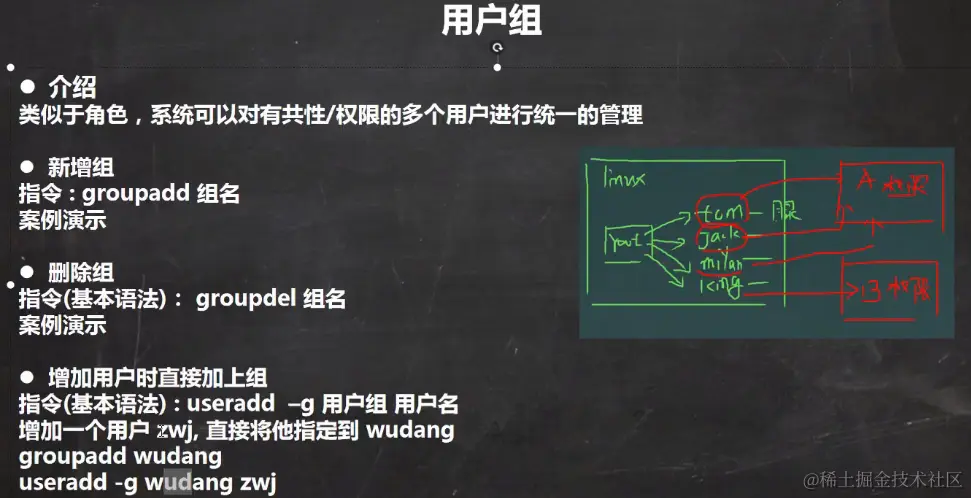 用户组
● 介绍
类似于角色，系统可以对有共性/权限的多个用户进行统一的管理
● 新增组
指令 : groupadd 组名
案例演示
● 删除组
指令(基本语法)： groupdel 组名
案例演示
● 增加用户时直接加上组
指令(基本语法) : useradd –g 用户组 用户名
增加一个用户 zwj, 直接将他指定到 wudang
groupadd wudang
useradd -g wudang zwj
linux
root
tom
jack
milan
king
A 权限
B 权限
@稀土掘金技术社区